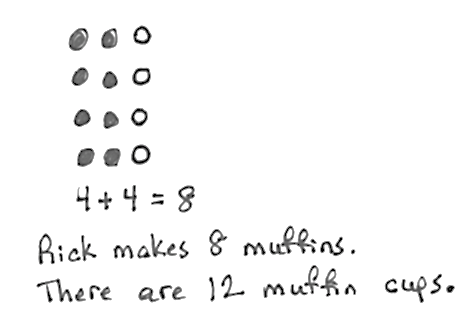 4 + 4 = 8
Rick makes 8 muffins.
There are 12 muffin cups.